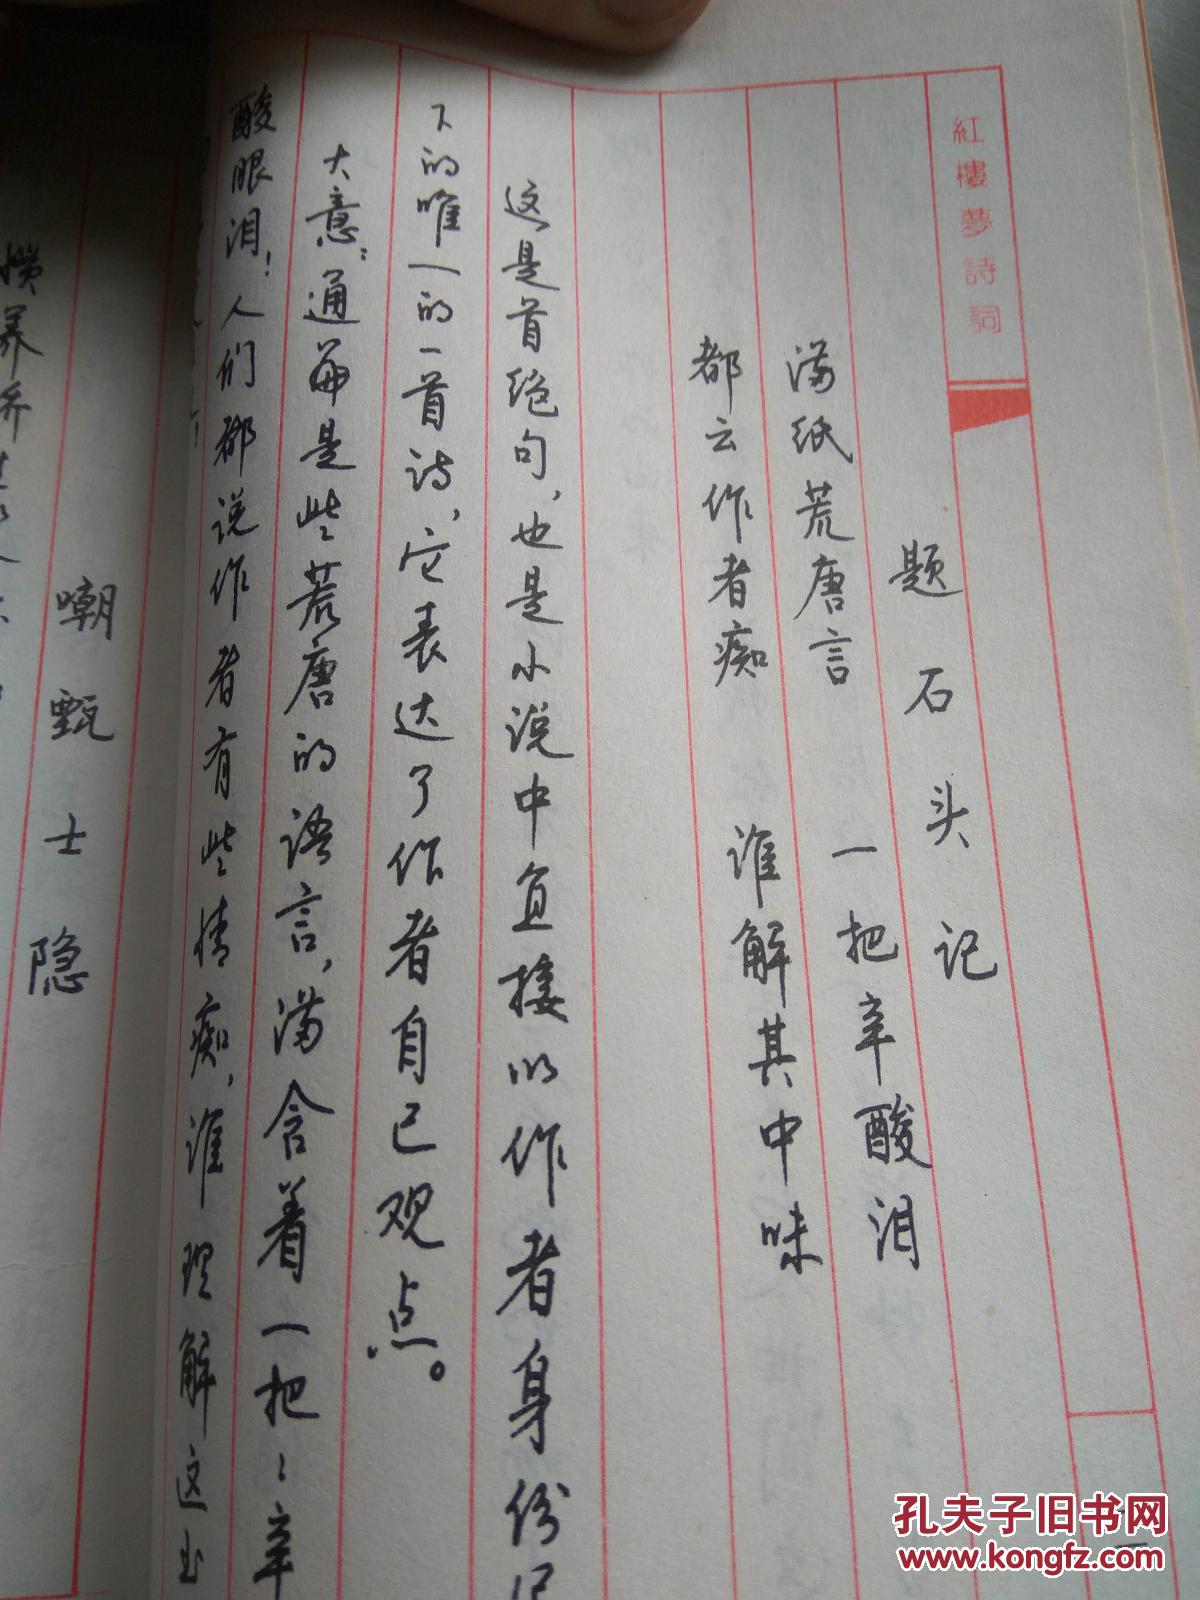 紅樓夢詩詞
题石头记
满纸荒唐言 一把辛酸泪
都云作者痴 谁解其中味
这是首绝句,也是小说中直接以作者身份记
下的唯一的一首诗,它表达了作者自己观点。
大意:通篇是些荒唐的语言,满含着一把、辛
酸眼泪!人们都说作者有些情痴,谁理解这
嘲甄士隐
孔夫子旧书网
www.kongfz.com